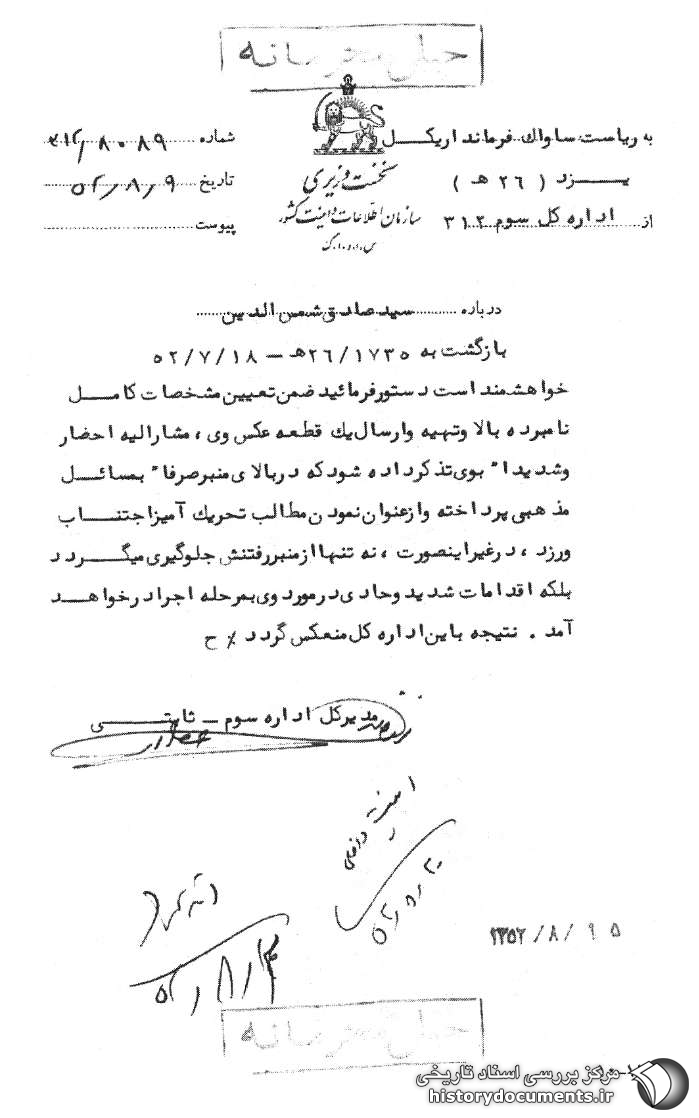 خیلی محرمانه
به ریاست ساواك فرماندار یکل
یزد ( ۲۶ هـ )
از اداره کل سوم ۳۱۲
نخست وزیری
سازمان اطلاعات و امنیت کشور
س.ا.و.ا.ک
شماره ۸۰۸۹ / ۳۱۲
تاریخ ۵۲/۸/۹
پیوست
درباره سید صادق شمس الدین
بازگشت به ۲۶/۱۷۳۵هـ – ۵۲/۷/۱۸
خواهشمند است دستور فرمائید ضمن تعیین مشخصات کامل
نامبرده بالا وتهیه وارسال یك قطعه عکس وی ، مشارالیه احضار
وشدیدا" بوی تذکر داده شود که در بالای منبر صرفا" بمسائل
مذهبی پرداخته و از عنوان نمودن مطالب تحریك آمیز اجتناب
ورزد ، در غیر اینصورت ، نه تنها از منبر رفتنش جلوگیری میگردد
بلکه اقدامات شدید و حادی در مورد وی بمرحله اجرا در خواهد
آمد . نتیجه باین اداره کل منعکس گردد ٪ ح
مدیر کل اداره سوم – ثابتی
۵۲/۸/۲۰
۵۲/۸/
۱۳۵۲/۸/
خیلی محرمانه
مرکز بررسی اسناد تاریخی
historydocuments.ir